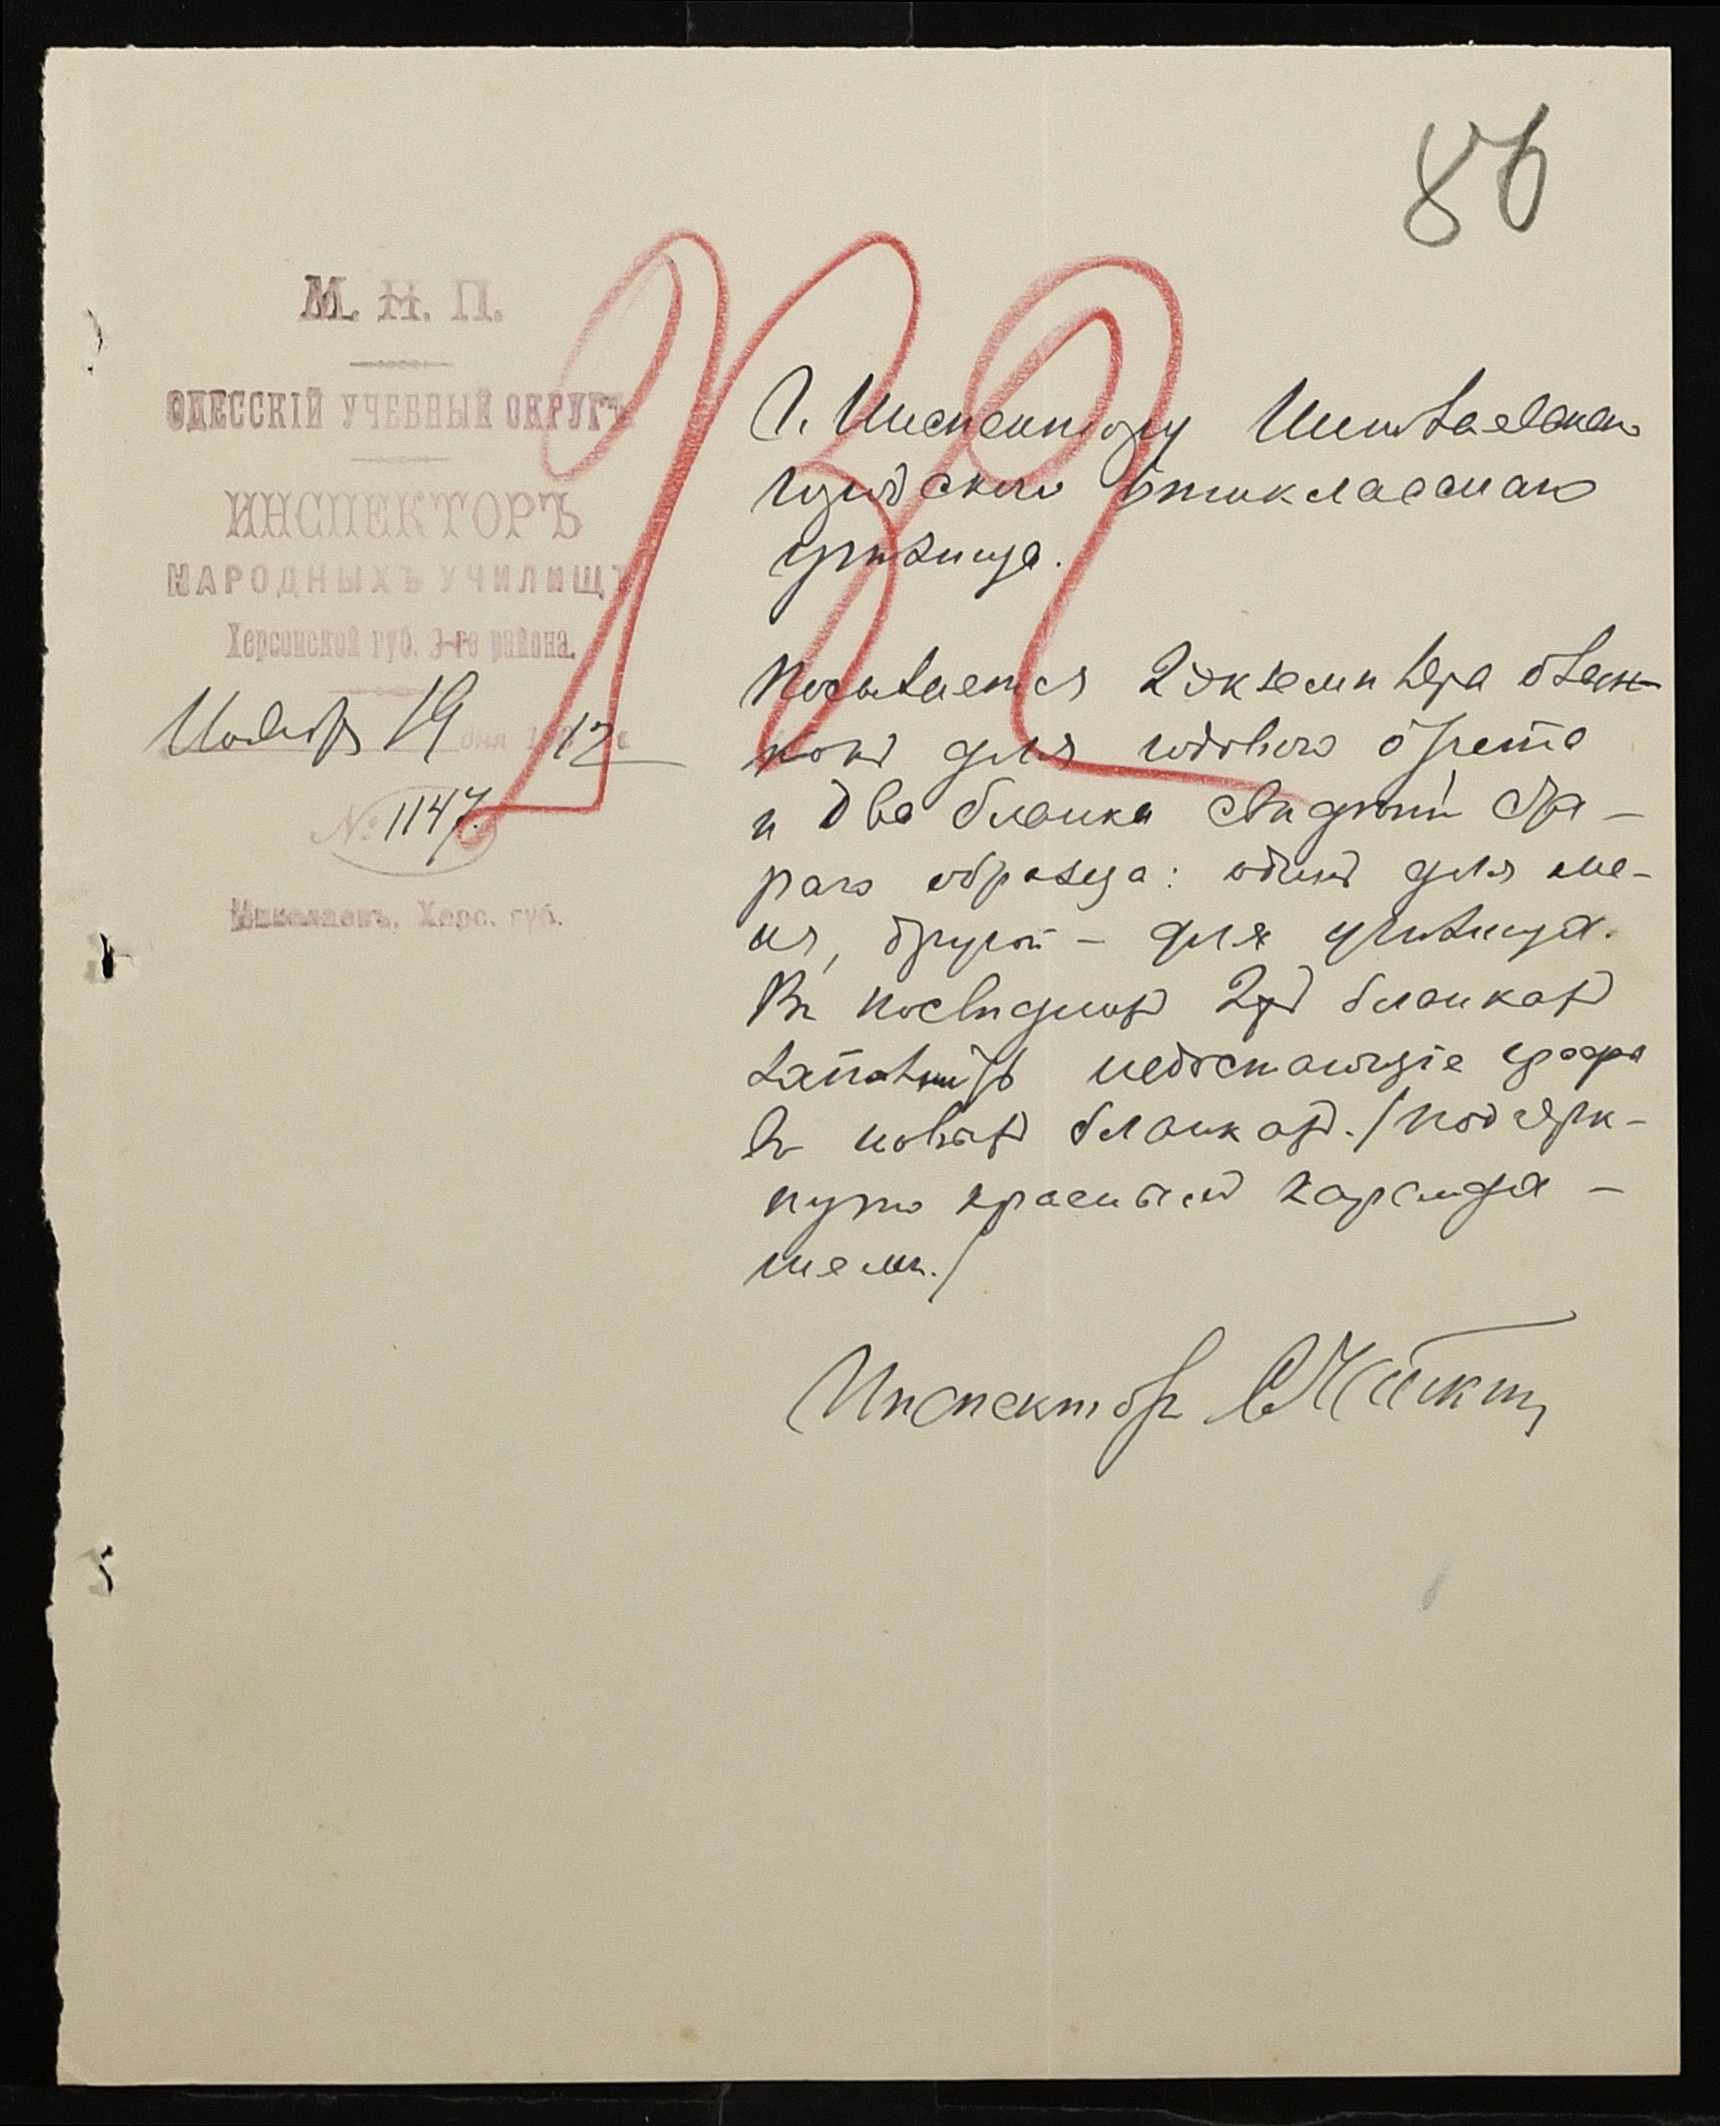 86
М. Н. П.
ОДЕССКІЙ УЧЕБНЫЙ ОКРУГЪ
ИНСПЕКТОРЪ
НАРОДНЫХЪ УЧИЛИЩЪ
Херсонской губ. 3-го района.
Ноября 19 дня 1912 г.
№ 1147.
Николаевъ, Херс. губ.
132
Г. Инспектору Николаевскаго
городского 6тикласснаго
училища.
Посылается 2 экземпляра блан-
ковъ для годового отчета
и два бланка ста-
раго образца: одинъ для ме-
ня, другой – для училища.
Въ послѣднихъ 2хъ бланкахъ
недостающіе графы
въ новыхъ бланкахъ. /Подчерк-
нуто краснымъ каранда-
шемъ./
Инспекторъ